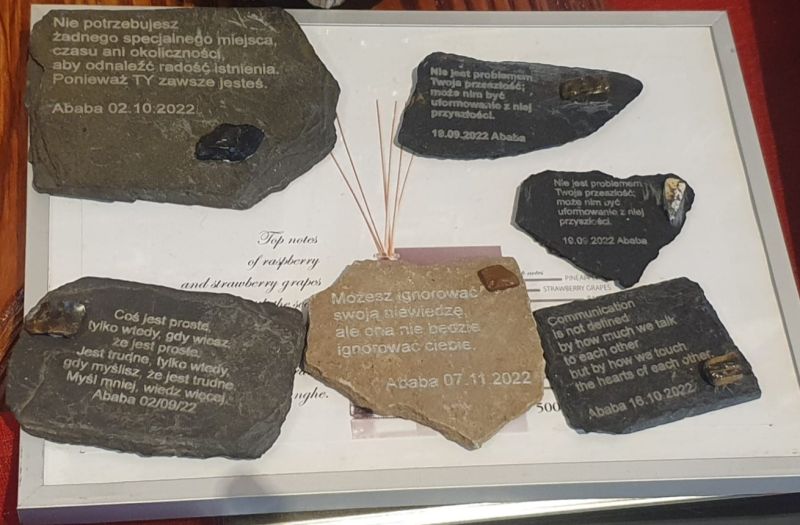 Nie potrzebujesz
żadnego specjalnego miejsca,
czasu ani okoliczności,
aby odnaleźć radość istnienia.
Ponieważ TY zawsze jesteś.
Ababa 02.10.2022
Nie jest problemem
Twoja przeszłość;
może nim być
uformowanie z niej
przyszłości.
19.09.2022 Ababa
Nie jest problemem
Twoja przeszłość;
może nim być
uformowanie z niej
przyszłości.
19.09.2022 Ababa
Top notes
of raspberry
and strawberry grapes
notes
PINEAPP
STRAWBERRY GRAPES
Coś jest proste,
tylko wtedy, gdy wiesz,
że jest proste.
Jest trudne, tylko wtedy,
gdy myślisz, że jest trudne.
Myśl mniej, wiedz więcej.
Ababa 02/09/22
Możesz ignorować
swoją niewiedzę,
ale ona nie będzie
ignorować ciebie.
Ababa 07.11.2022
Communication
is not defined
by how much we talk
to each other
but by how we touch
the hearts of each other.
Ababa 16.10.2022
500